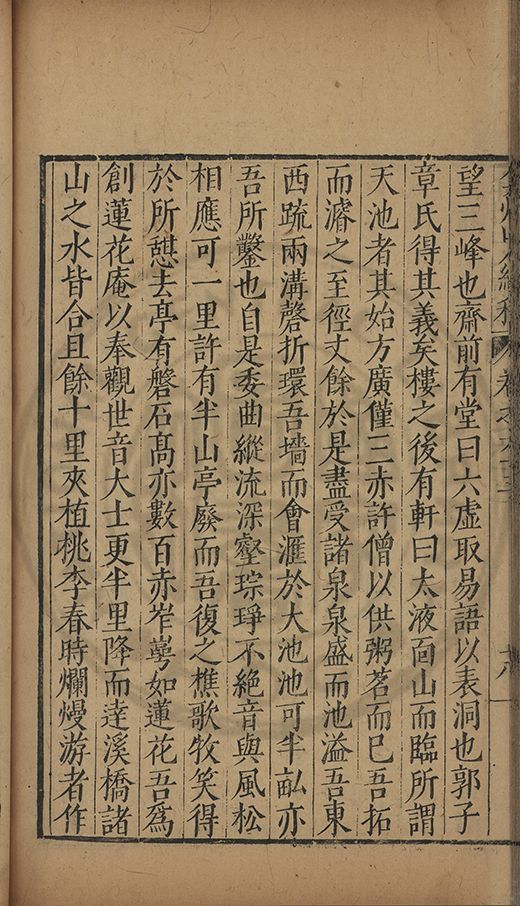 望三峰也齋前有堂曰六虛取易語以表洞也郭子
章氏得其義矣樓之後有軒曰太液面山而臨所謂
天池者其始方廣僅三赤許僧以供粥茗而已吾拓
而濬之至徑丈餘於是盡受諸泉泉盛而池溢吾東
西疏兩溝磬折環吾墻而會滙於大池池可半畝亦
吾所鑿也自是委曲縱流深壑琮琤不絕音與風松
相應可一里許有半山亭廢而吾復之樵歌牧笑得
於所憇去亭有磐石高亦數百赤岝崿如蓮花吾爲
創蓮花庵以奉觀世音大士更半里降而逹溪橋諸
山之水皆合且餘十里夾植桃李春時爛熳游者作